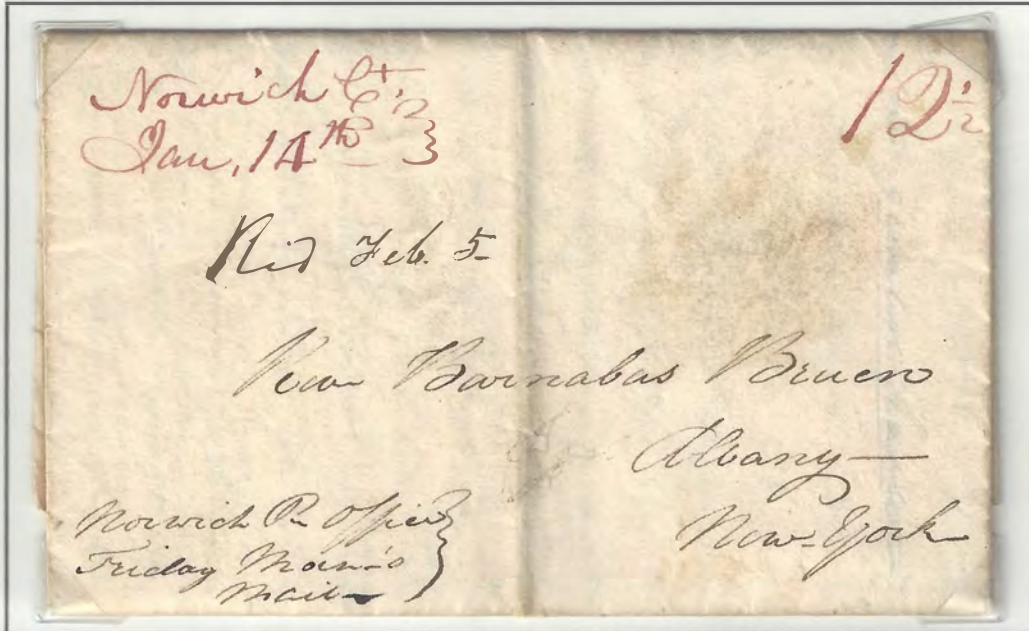 Norwich Ct.
Jan, 14th
12 1/2
Feb. 5
Barnabas Bruen
Albany
New-York
Norwich P. Office
Friday Morn'g
Mail